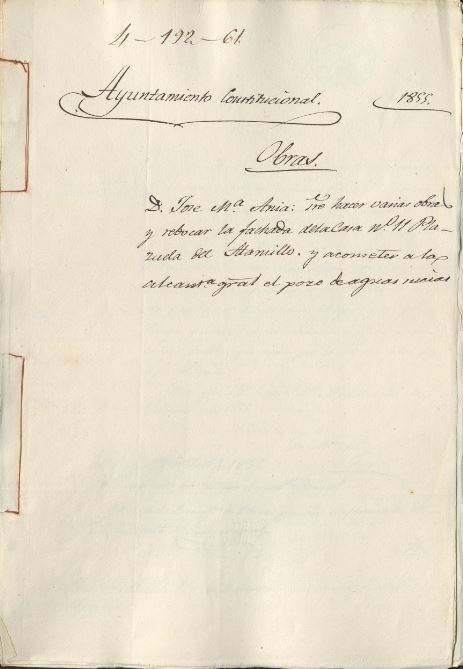 4-192-61.
Ayuntamiento Constitucional. 1855.
Obras.
D. Jose Mª Ania: sre hacer varias obras
y revocar la fachada dela Casa nº 11 Pla-
zuela del Alamillo. y acometer a la
alcantª gral el pozo de aguas sucias